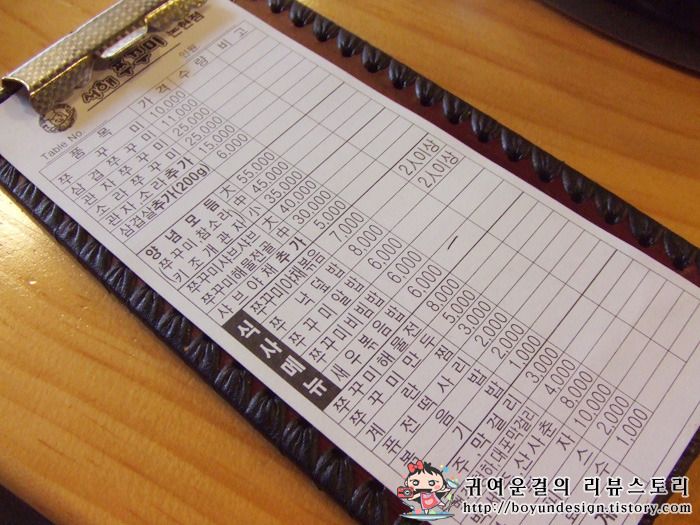 서해 쭈꾸미 논현점
Table No. 인원
품목 가격 수량 비고
쭈꾸미 10,000
삼겹쭈꾸미 11,000
관자쭈꾸미 25,000
소라쭈꾸미 25,000
관자·소라추가 15,000
삼겹살추가(200g) 6,000
양념모듬 大 55,000
(쭈꾸미 참소라 中 45,000
키조개관자 小 35,000
쭈꾸미샤브샤브 大 40,000 2人이상
쭈꾸미해물전골 中 30,000 2人이상
샤브야채추가 5,000
쭈꾸미야채볶음 7,000
식사메뉴
쭈낙덮밥 8,000
쭈꾸미알밥 6,000
쭈꾸미비빔밥 6,000
새우볶음밥 6,000
쭈꾸미해물전 8,000
쭈꾸미만두 5,000
계란찜 3,000
퓨전떡사리 2,000
볶음밥 2,000
공기밥 1,000
소주,막걸리 3,000
대포막걸리 4,000
산사춘 8,000
10,000
2,000
1,000
귀여운걸의 리뷰스토리
http://boyundesign.tistory.com